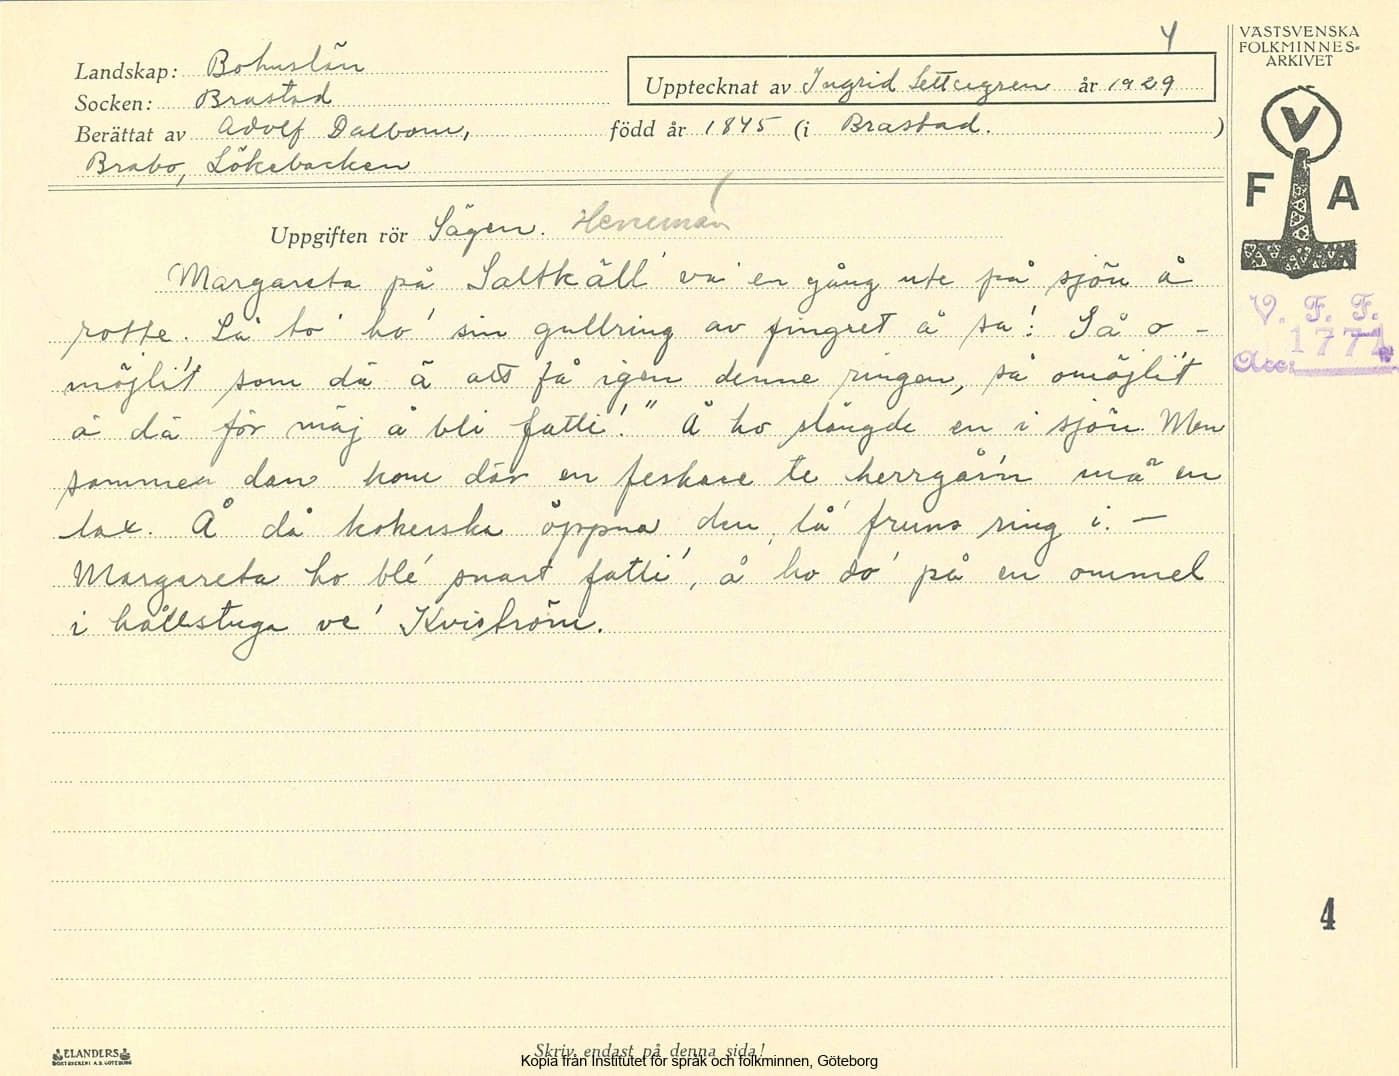 4
VÄSTSVENSKA
FOLKMINNES-
ARKIVET
Landskap: Bohuslän
Upptecknat av Ingrid år 1929
Socken: Brastad
Berättat av Adolf Dalbom, född år 1845 (i Brastad. )
Brabo, Lökebacken
V
F A
Uppgiften rör Sägen. Herreman
Margareta på Saltkäll va' en gång ute på sjön å
rodde. Så to' ho' sin gullring av fingret å sa': Så o-
möjli't som dä ä att få igen denne ringen, så omöjli't
ä dä för mäj å bli fatti'." Å ho slängde en i sjön. Men
sammen dan kom där en feskare te herrgår'n mä en
lax. Å då kokerska öppna den, lå' fruns ring i. —
Margareta ho ble' snart fatti', å ho do' på en ommel
i hållstuga ve' Kviström.
V. F. F.
Acc: 1774
4
ELANDERS
BOKTRYCKERI A.B. GÖTEBORG
Skriv endast på denna sida!
Kopia från Institutet för språk och folkminnen, Göteborg